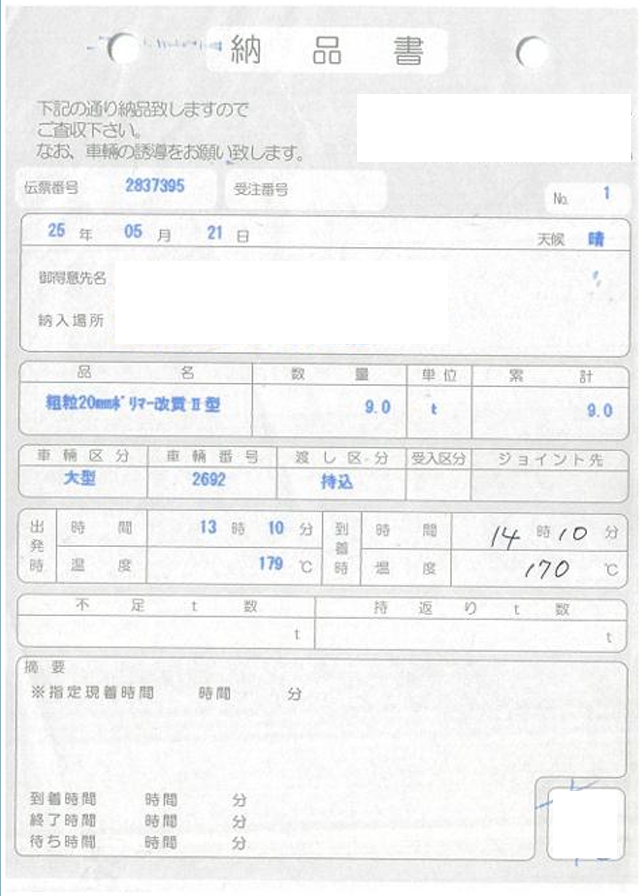 納品書
下記の通り納品致しますので
ご査収下さい。
なお、車輛の誘導をお願い致します。
伝票番号 2837395 受注番号 No. 1
25年 05月 21日 天候 晴
御得意先名
納入場所
品名 数量 単位 累計
粗粒20mmﾎﾟﾘﾏｰ改質Ⅱ型 9.0 t 9.0
車輛区分 車輛番号 渡し区分 受入区分 ジョイント先
大型 2692 持込
出発時 時間 13時10分 到着時 時間 14時10分
温度 179℃ 温度 170℃
不足t数 持返りt数
t t
摘要
※指定現着時間 時間 分
到着時間 時間 分
終了時間 時間 分
待ち時間 時間 分